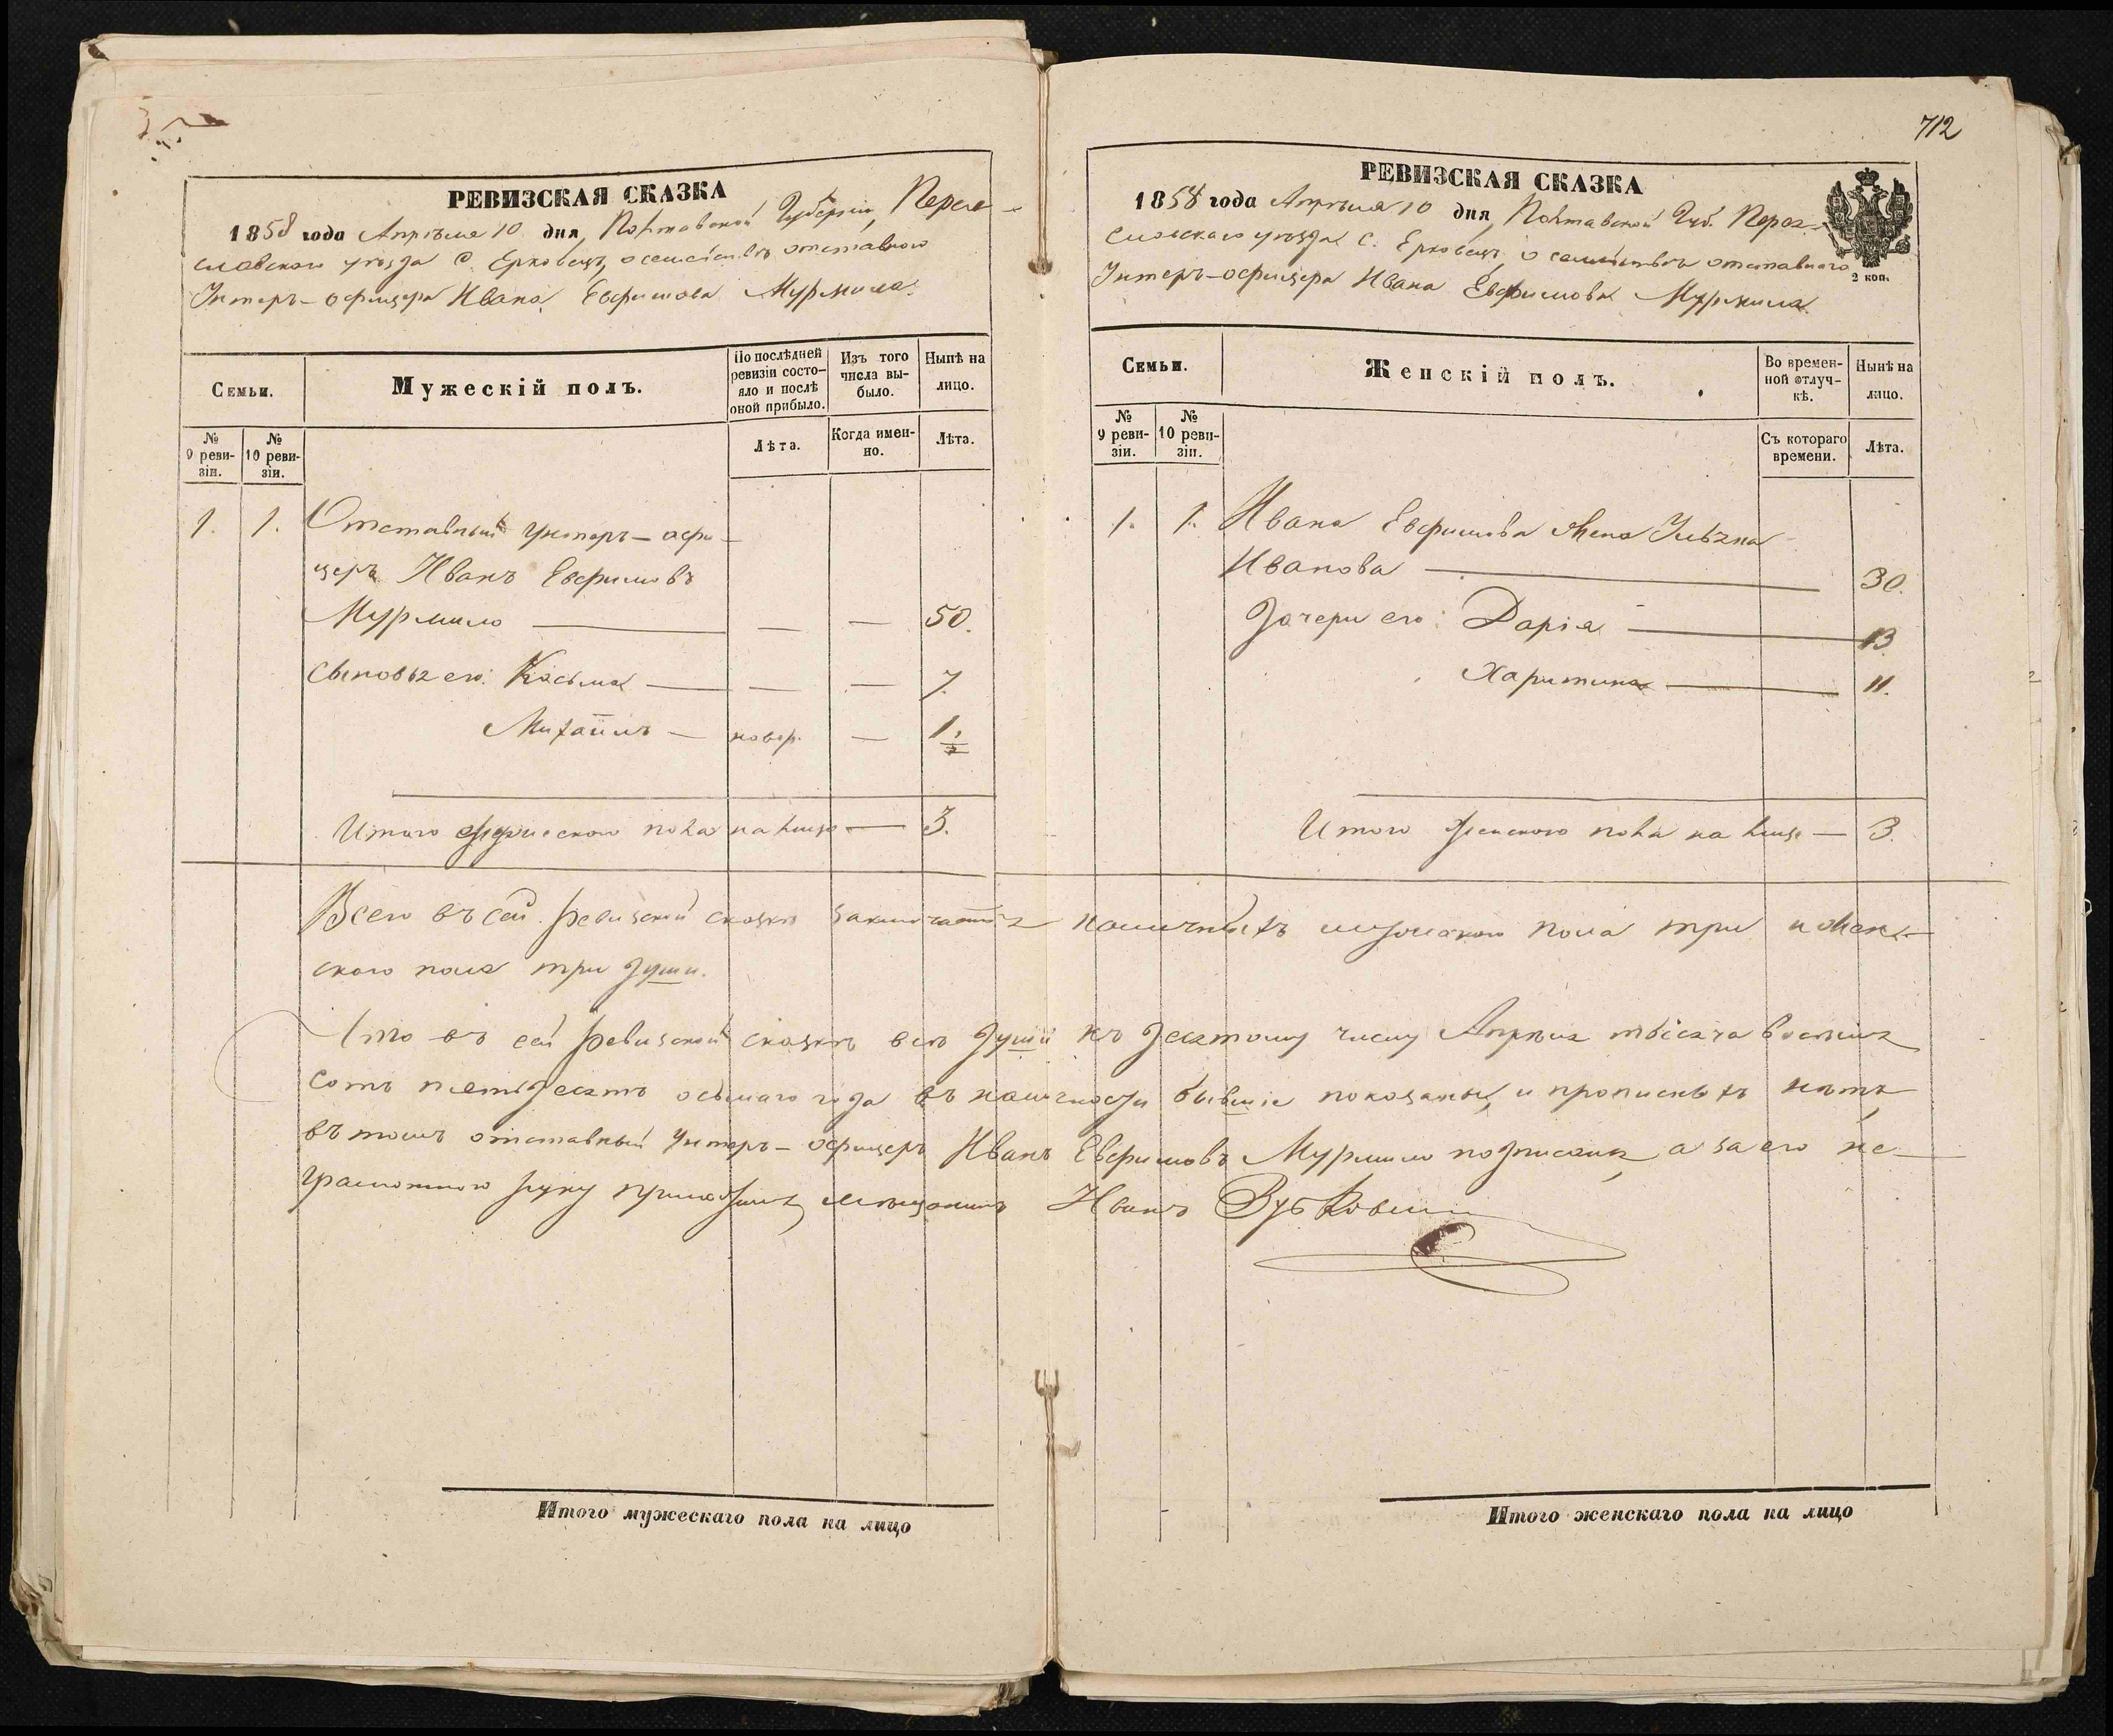 РЕВИЗСКАЯ СКАЗКА
1858 года Апрѣля 10 дня, Полтавской Губерніи, Перея-
славскаго уѣзда С. Ерковецъ, о семействѣ отставного
Унтеръ-офицера Ивана Евфимова Мурмила.
Семьи.
Мужескій полъ.
По послѣдней ревизіи состо-яло и послѣ оной прибыло.
Изъ того числа вы-было.
Нынѣ на лицо.
№ 9 реви-зіи.
№ 10 реви-зіи.
Лѣта.
Когда имен-но.
Лѣта.
1. 1. Отставный унтеръ-офи-
церъ Иванъ Евфимовъ
Мурмило — — — 50.
Сыновья его: Косьма — — — 7.
Михаилъ — новор. — 1.
Итого мужескаго пола на лицо — 3.
712
РЕВИЗСКАЯ СКАЗКА
1858 года Апрѣля 10 дня, Полтавской Губ. Перея-
славскаго уѣзда С. Ерковецъ, о семействѣ отставнаго
Унтеръ-офицера Ивана Евфимова Мурмила.
2 коп.
Семьи.
Женскій полъ.
Во времен-ной отлуч-кѣ.
Нынѣ на лицо.
№ 9 реви-зіи.
№ 10 реви-зіи.
Съ котораго времени.
Лѣта.
1. 1. Ивана Евфимова жена
Иванова — 30.
Дочери его: Дарія — 13.
Харитина — 11.
Итого женского пола на лицо — 3.
Всего въ сей ревизской сказкѣ заключается наличныхъ мужскаго пола три и жен-
ского пола три души.
Что въ сей ревизской сказкѣ всѣ души къ десятому числу Апрѣля тысяча восемь
сотъ пятьдесятъ осьмаго года въ наличности бывшіе показаны, и прописныхъ нѣтъ,
въ томъ отставный Унтеръ-офицеръ Иванъ Евфимовъ Мурмило подписался, а за его не-
грамотного руку приложилъ мѣщанинъ Иванъ
Итого мужескаго пола на лицо
Итого женскаго пола на лицо